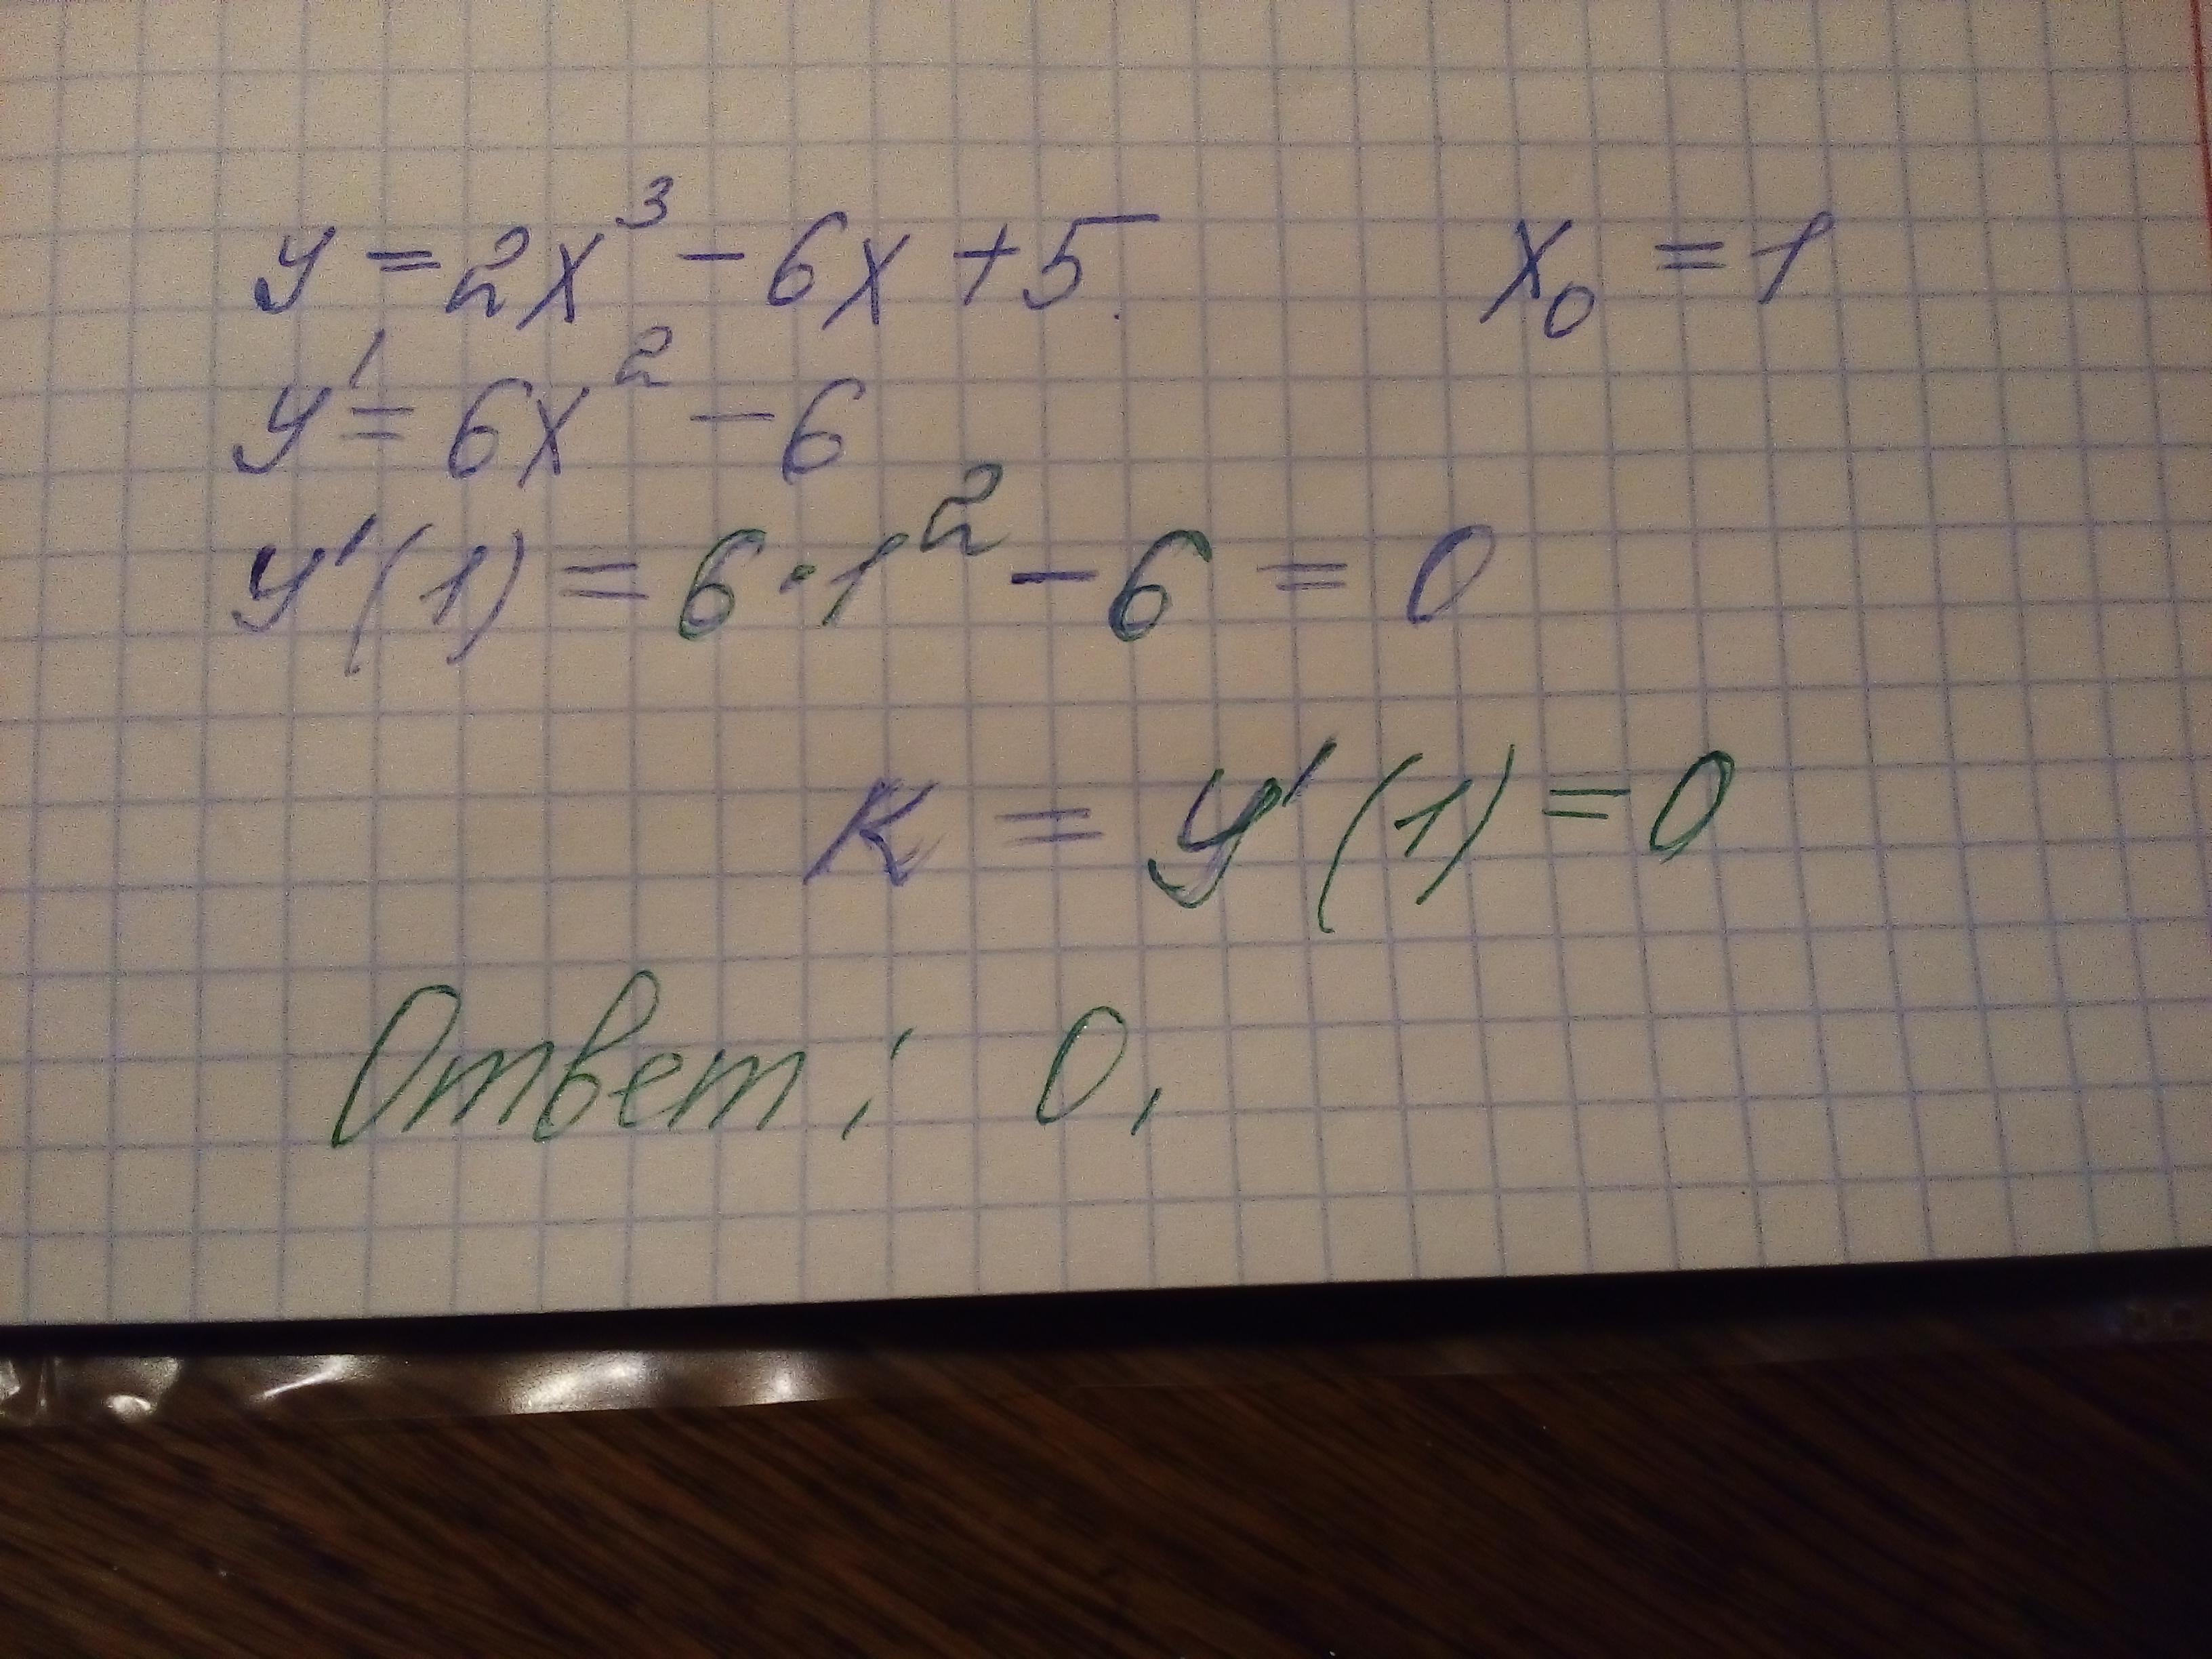 y = 2x³ - 6x + 5. x₀ = 1
y' = 6x² - 6
y'(1) = 6 · 1² - 6 = 0
K = y'(1) = 0
Ответ: 0,